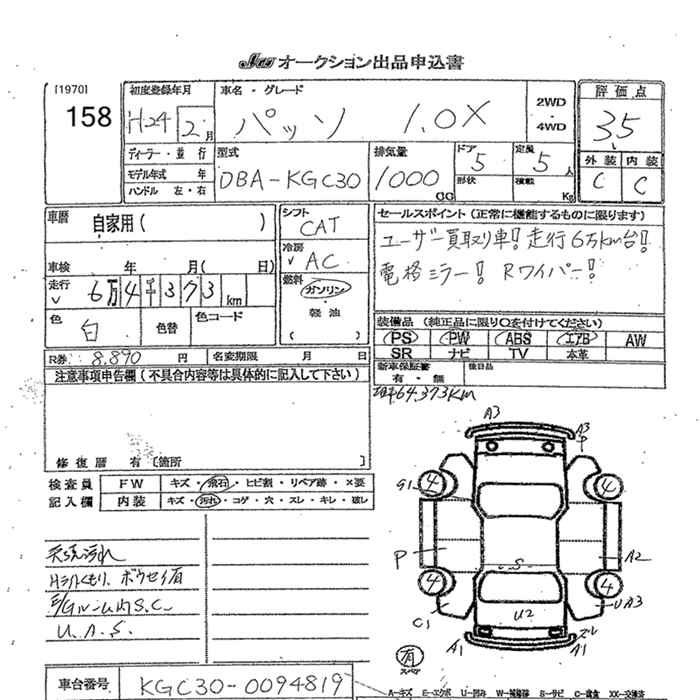 オークション出品申込書
[1970]
158
初度登録年月
H24 2月
車名・グレード
パッソ 1.0X
2WD
・
4WD
評価点
3.5
外装 内装
C C
ディーラー・並行
モデル年式 年
ハンドル 左・右
型式
DBA-KGC30
排気量
1000 CC
ドア 5
形状
定員 5人
積載 Kg
車歴 自家用( )
車検 年 月( 日)
走行 6万4千373km
色 白
色替
色コード
シフト
CAT
冷房
AC
燃料
ガソリン
・
軽油
( )
セールスポイント(正常に機能するものに限ります)
ユーザー買取り車! 走行6万km台!
電格ミラー! Rワイパー!
装備品(純正品に限り○を付けてください)
PS PW ABS エアB AW
SR ナビ TV 本革
新車保証書
有・無
後日品
R券 8,890円
名変期限 月 日
64,373KM
注意事項申告欄(不具合内容等は具体的に記入して下さい)
修復歴 有〔箇所 〕
検査員
記入欄
FW キズ・飛石・ヒビ割・リペア跡・×要
内装 キズ・汚れ・コゲ・穴・スレ・キレ・破レ
天張汚れ
Hライトくもり、ボウセイ有
U.A.S.
A3
A3
G1 4 4
P
S
A2
4 4
C1
U2
UA3
A1
ズレ
A1
有
スペア
車台番号 KGC30-0094819
A-キズ E-エクボ U-凹み W-補修跡 S-サビ C-腐食 XX-交換済